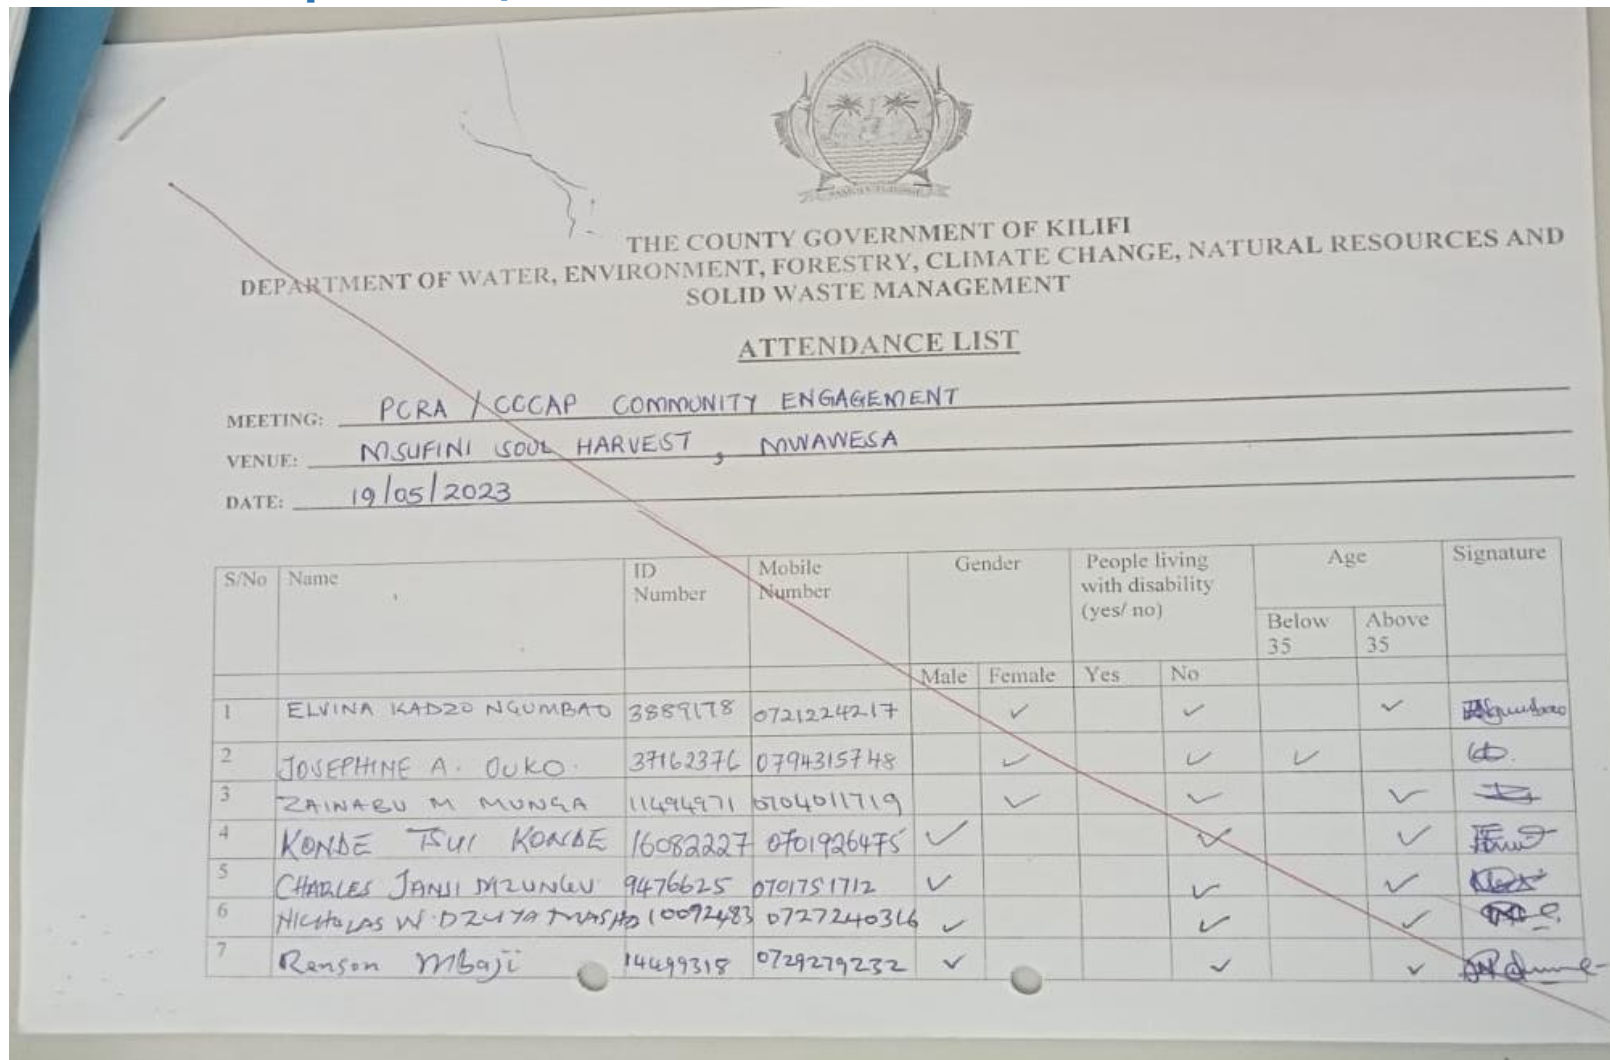 THE COUNTY GOVERNMENT OF KILIFI
DEPARTMENT OF WATER, ENVIRONMENT, FORESTRY, CLIMATE CHANGE, NATURAL RESOURCES AND
SOLID WASTE MANAGEMENT
ATTENDANCE LIST
MEETING: PCRA / CCCAP COMMUNITY ENGAGEMENT
VENUE: MSUFINI SOUL HARVEST, MWAWESA
DATE: 19/05/2023
S/No Name ID Number Mobile Number Gender People living with disability (yes/ no) Age Signature
Below 35 Above 35
Male Female Yes No
1 ELVINA KADZO NGUMBAO 3889178 0721224217 ✓ ✓ ✓
2 JOSEPHINE A. OUKO. 37162376 0794315748 ✓ ✓ ✓
3 ZAINABU M MUNGA 11494971 0704011719 ✓ ✓ ✓
4 KONDE TSUI KONDE 16082227 0701926475 ✓ ✓ ✓
5 CHARLES JANSI MZUNGU 9476625 0701751712 ✓ ✓ ✓
6 NICHOLAS W. DZUYA 10092483 0727240316 ✓ ✓ ✓
7 Renson Mbaji 14499318 0729279232 ✓ ✓ ✓